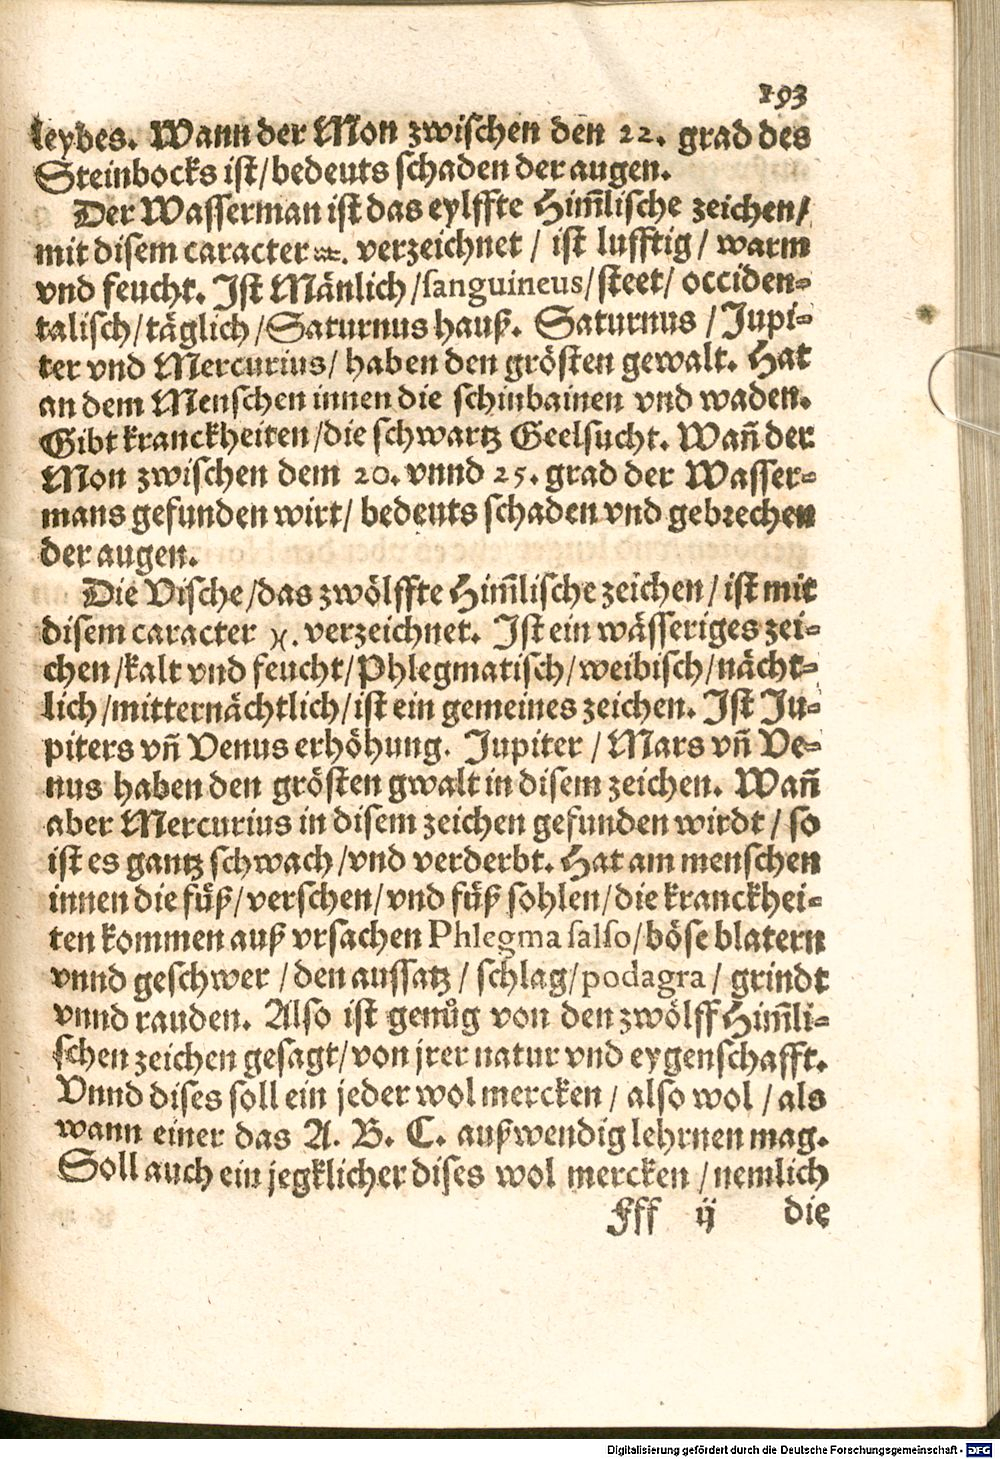 193
leybes. Wann der Mon zwischen den 22. grad des
Steinbocks ist/bedeuts schaden der augen.
Der Wasserman ist das eylffte Him̃lische zeichen/
mit disem caracter ♒. verzeichnet / ist lufftig / warm
vnd feucht. Ist Mänlich/sanguineus/steet/ occiden=
talisch/täglich/Saturnus hauß. Saturnus / Jupi=
ter vnd Mercurius/ haben den grösten gewalt. Hat
an dem Menschen innen die schinbainen vnd waden.
Gibt kranckheiten/die schwartz Geelsucht. Wañ der
Mon zwischen dem 20. vnnd 25. grad der Wasser=
mans gefunden wirt/ bedeuts schaden vnd gebrechen
der augen.
Die Vische/das zwölffte Him̃lische zeichen/ ist mit
disem caracter ♓. verzeichnet. Ist ein wässeriges zei=
chen/kalt vnd feucht/Phlegmatisch/weibisch/nächt=
lich/mitternächtlich/ist ein gemeines zeichen. Ist Ju=
piters vñ Venus erhöhung. Jupiter / Mars vñ Ve=
nus haben den grösten gwalt in disem zeichen. Wañ
aber Mercurius in disem zeichen gefunden wirdt / so
ist es gantz schwach/vnd verderbt. Hat am menschen
innen die füß/verschen/vnd füß sohlen/die kranckhei=
ten kommen auß vrsachen Phlegma salso/böse blatern
vnnd geschwer /den aussatz / schlag/podagra/ grindt
vnnd rauden. Also ist genůg von den zwölff Him̃li=
schen zeichen gesagt/von jrer natur vnd eygenschafft.
Vnnd dises soll ein jeder wol mercken / also wol / als
wann einer das A. B. C. außwendig lehrnen mag.
Soll auch ein jegklicher dises wol mercken /nemlich
Fff ij die
Digitalisierung gefördert durch die Deutsche Forschungsgemeinschaft - DFG